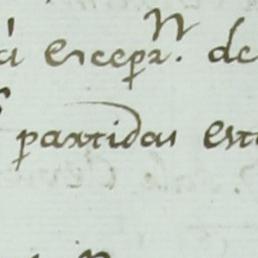 á excepn. de
partidas est